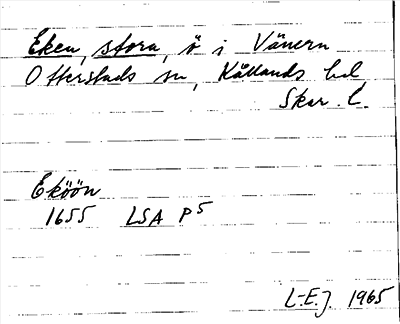 Eken, stora, ö i Vänern
Otterstads sn, Kållands hd
Skar. l.
Eköön
1655 LSA P5
L-E.J. 1965